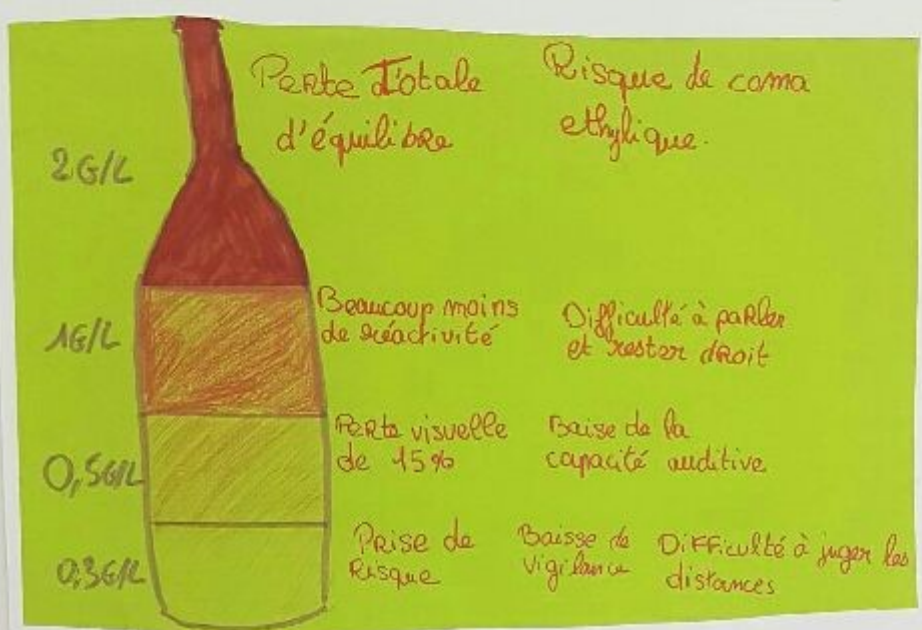 2G/L
Perte Totale
d'équilibre
Risque de coma
ethylique.
1G/L
Beaucoup moins
de réactivité
Difficulté à parler
et rester droit
0,5G/L
Perte visuelle
de 15%
Baise de la
capacité auditive
0,3G/L
Prise de
Risque
Baisse de
vigilance
Difficulté à juger les
distances